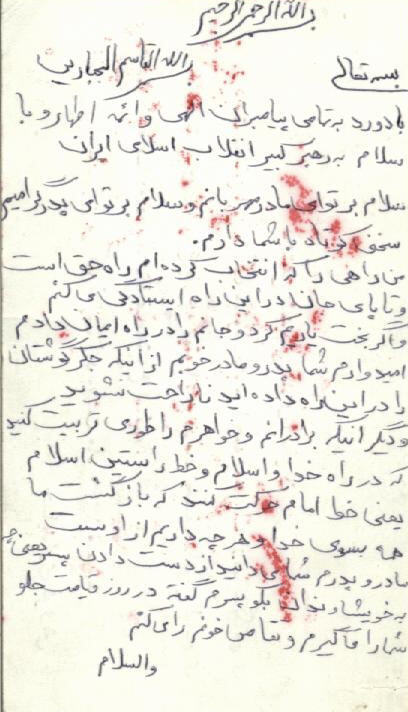 بسم الله الرحمن الرحیم
بسمه تعالی بسم الله القاسم الجبارین
با درود به تمامی پیامبران الهی و ائمه اطهار و با
سلام به رهبر کبیر انقلاب اسلامی ایران
سلام بر تو ای مادر مهربانم و سلام بر تو ای پدر گرامیم
سخنی کوتاه با شما دارم.
من راهی را که انتخاب کرده ام راه حق است
و تا پای جان در این راه ایستادگی می کنم
و اگر بخت یاریم کرد و جانم را در راه ایمان دادم
امیدوارم شما پدر و مادر خوبم از اینکه جگر گوشتان
را در این راه داده اید ناراحت نشوید
و دیگر اینکه برادرانم و خواهرم را طوری تربیت کنید
که در راه خدا و اسلام و خط راستین اسلام
یعنی خط امام حرکت کنند که بازگشت ما
همه بسوی خدا و هر چه داریم از اوست
مادر و پدرم شما می دانید از دست دادن پسر یعنی چه
به خویشاوندان بگو پسرم گفته در روز قیامت جلو
شما را می گیرم و تقاص خونم را می کنم
والسلام